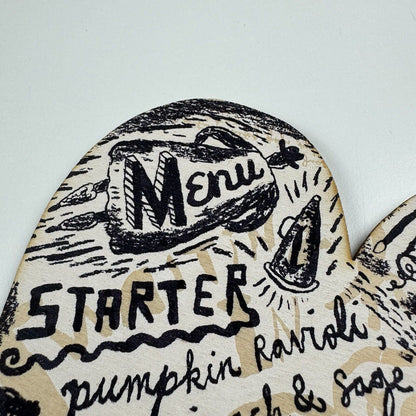 Menu
STARTER
pumpkin ravioli,
& sage